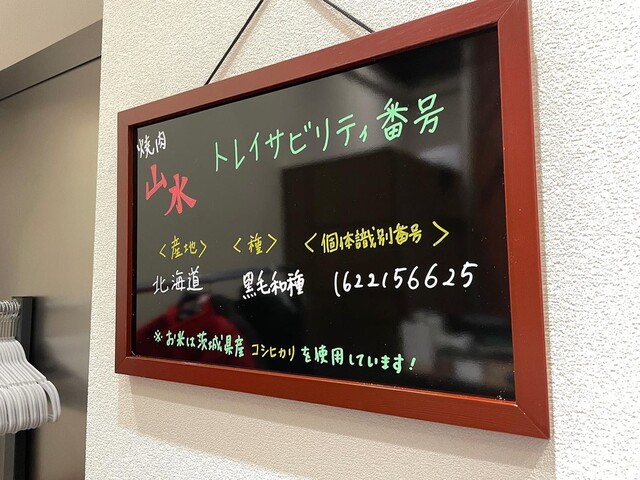 焼肉
山水
トレイサビリティ番号
<産地> <種> <個体識別番号>
北海道 黒毛和種 1622156625
※お米は茨城県産コシヒカリを使用しています!